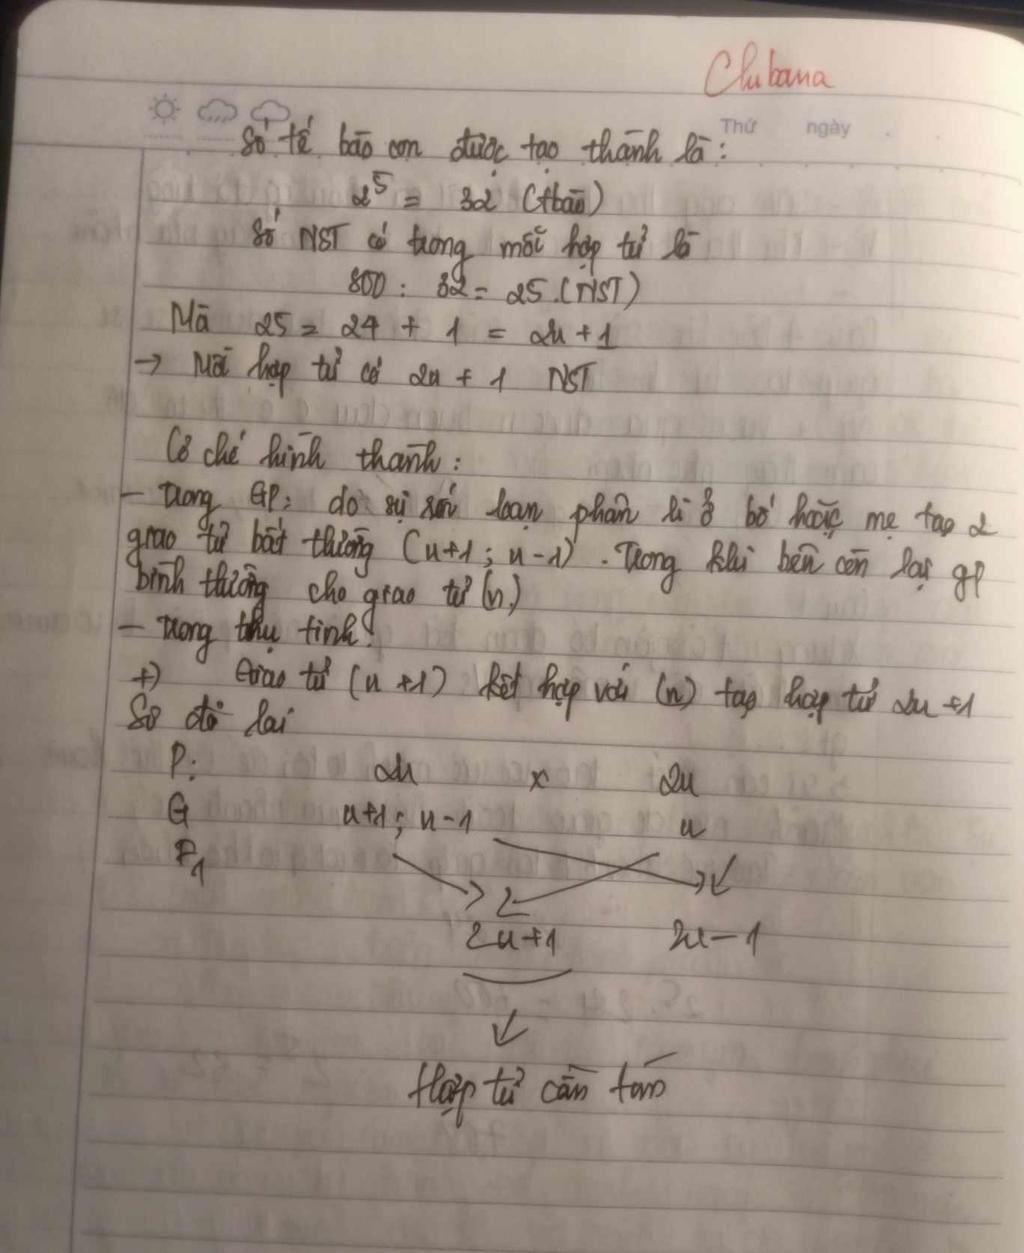 Chubana
Thứ ngày
Số tế bào con được tạo thành là:
2^5 = 32 (tbào)
Số NST có trong mỗi hợp tử là
800 : 32 = 25 (NST)
Mà 25 = 24 + 1 = 2n+1
→ Mỗi hợp tử có 2n + 1 NST
Cơ chế hình thành:
- Trong GP: do sự rối loạn phân li ở bố hoặc mẹ tạo 2
giao tử bất thường (n+1; n-1). Trong khi bên còn lại gp
bình thường cho giao tử (n)
- Trong thụ tinh:
+) Giao tử (n+1) kết hợp với (n) tạo hợp tử 2n+1
Sơ đồ lai
P: 2n x 2n
G n+1; n-1 n
F1
2n+1 2n-1
Hợp tử cần